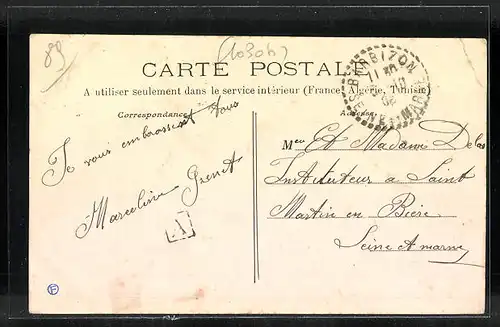 89
(10306)
CARTE POSTALE
A utiliser seulement dans le service intérieur (France, Algérie, Tunisie)
Correspondance
Adresse
BARBIZON
Je vous embrasse tous
Marceline Grenet
A
Mʳ Et Madame Delas
Instituteur a Saint
Martin en Bière
Seine et marne